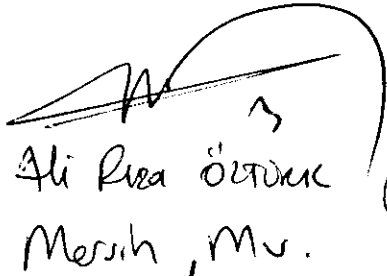 Ali Rıza ÖZTÜRK
Mersin, Mv.